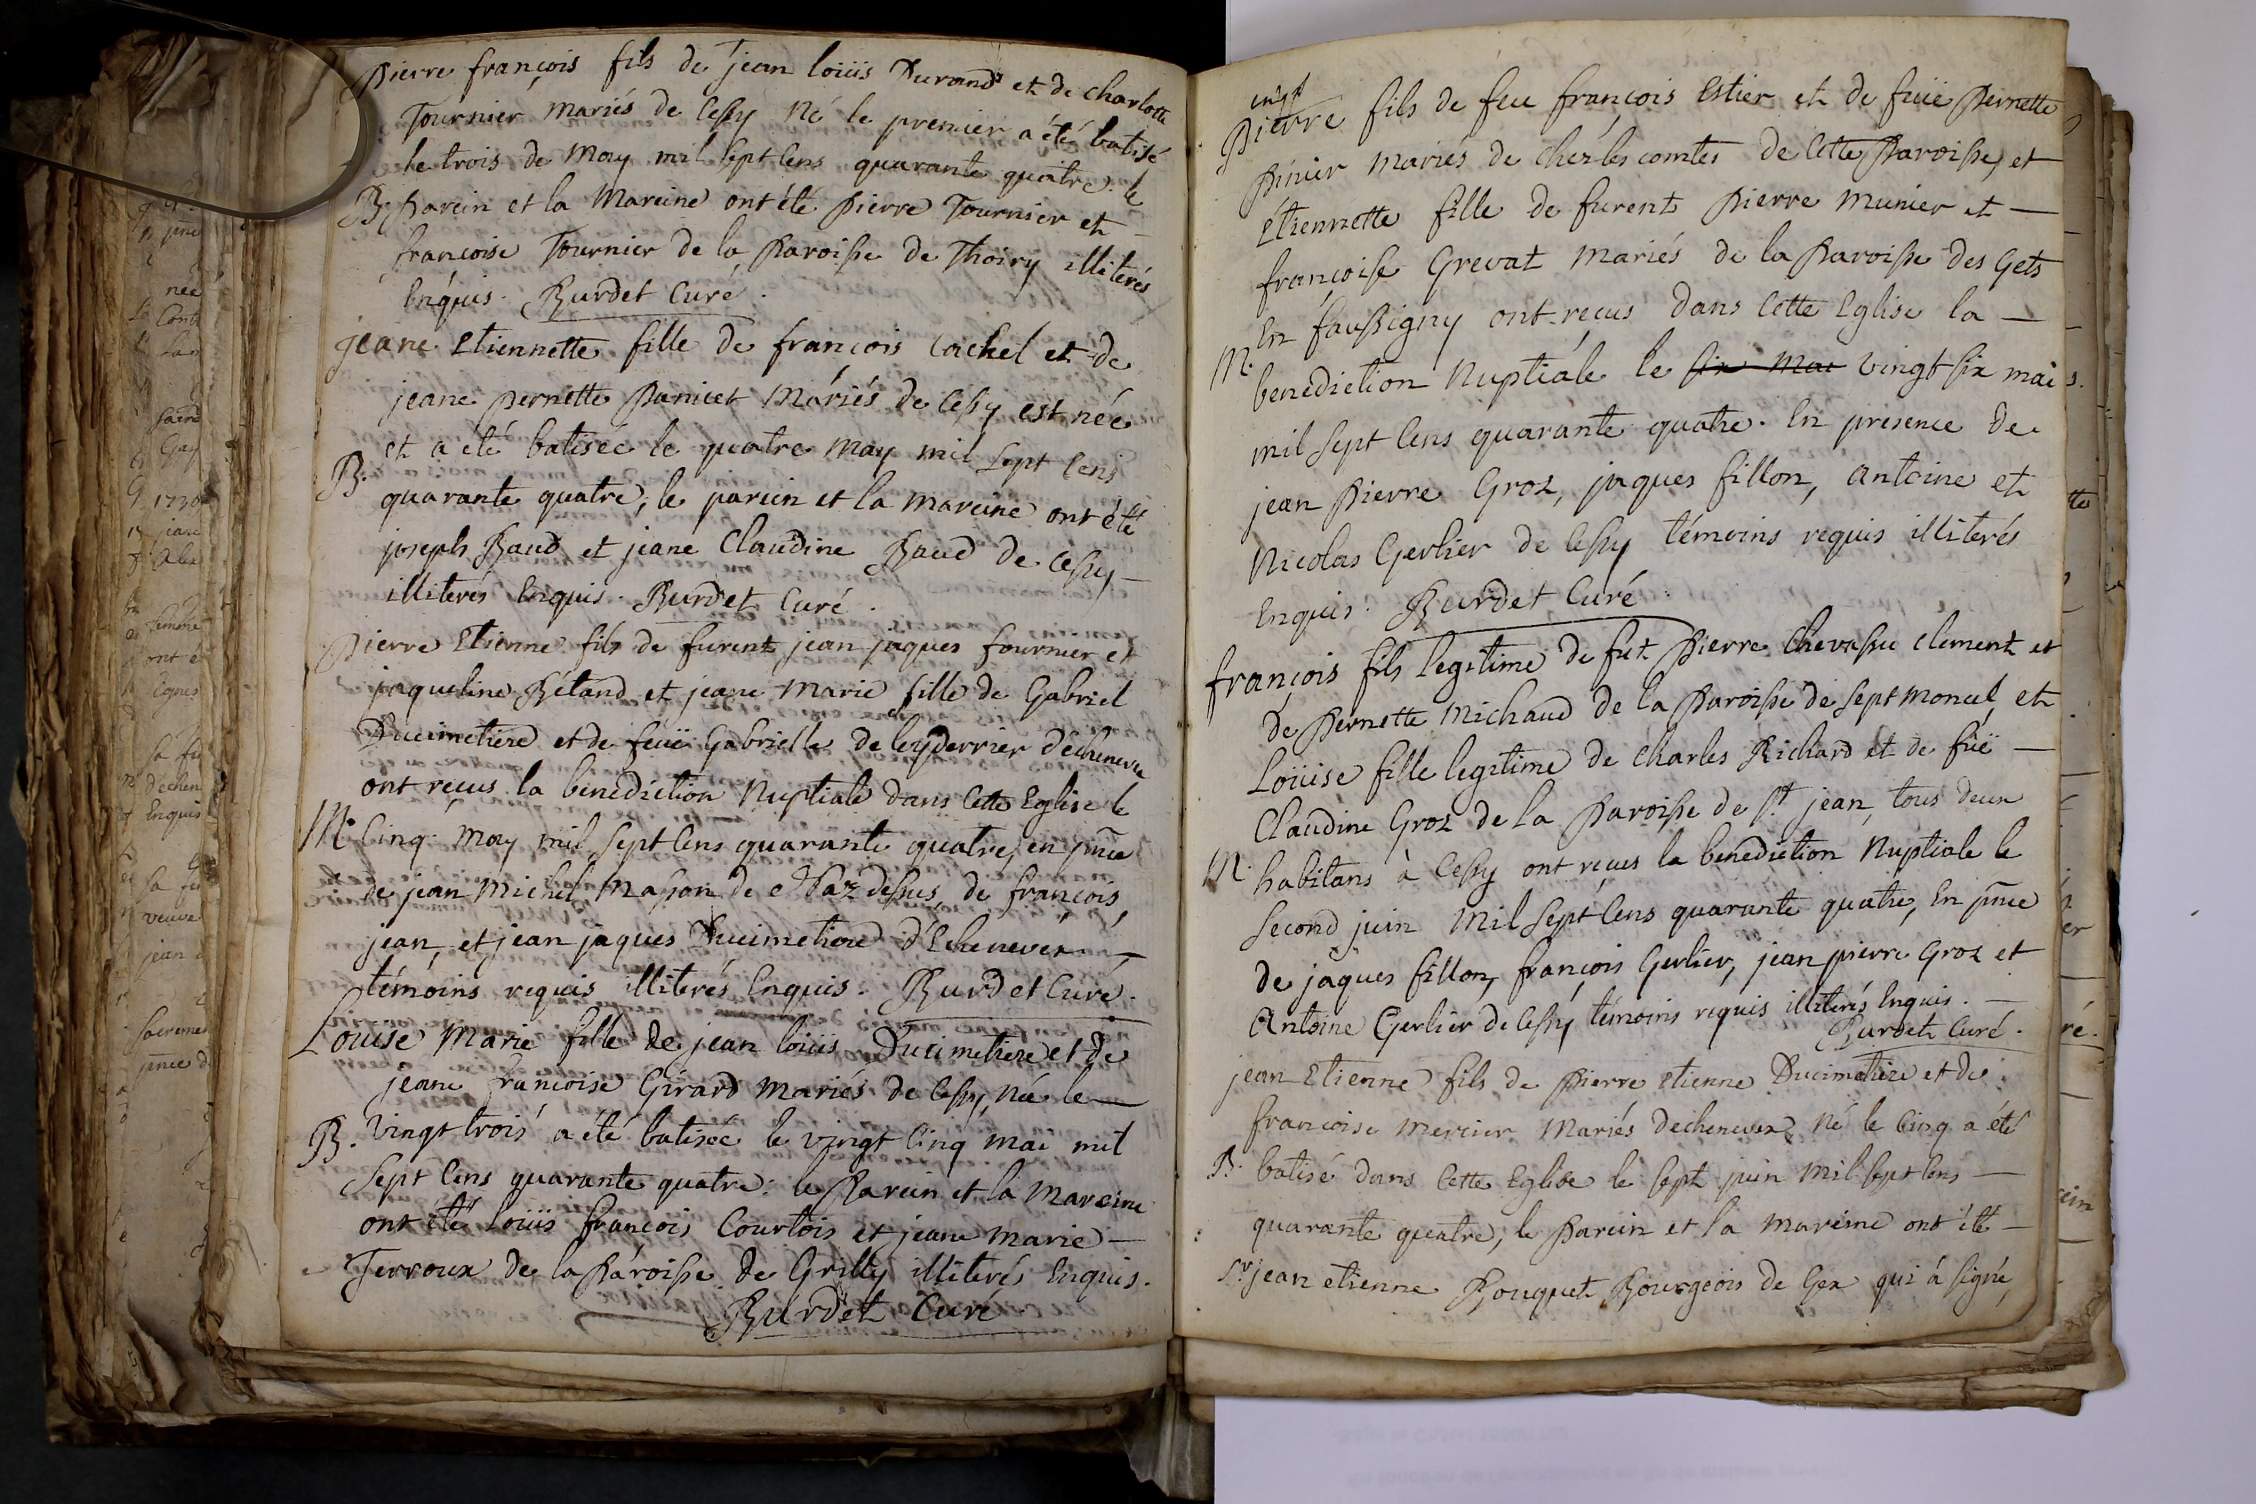 pierre françois fils de jean loüis Durand et de charlotte
Tournier mariés de Cessy né le premier a été batisé
le trois de may mil sept cens quarante quatre. le
B. parcin et la Marcine ont été pierre Tournier et —
françoise Tournier de la paroisse de Thoiry illiterés
Enquis. Burdet Curé.
jeane Etiennette fille de françois Cachel et de
jeane pernette panicet Mariés de Cessy est née
et a été batisée le quatre may mil sept cens
B. quarante quatre, le parcin et la marcine ont été
joseph Baud et jeane Claudine Baud de Cessy —
illiterés Enquis. Burdet Curé.
pierre Etienne fils de furent jean jaques fournier et
jaqueline Rétand et jeane marie fille de Gabriel
Ducimetiere et de feuë Gabrielle de leyderrier dechenevex
ont reçus la benediction Nuptiale dans Cette Eglise le
M. Cinq may mil sept Cens quarante quatre, en pñce
de jean michel masson de Naz dessus, de françois,
jean, et jean jaques Ducimetiere d'Echenevex —
témoins requis illiterés Enquis. Burdet Curé.
Louise Marie fille de jean loüis Ducimetiere et de
jeane francoise Girard mariés de Cessy, née le —
B. vingt trois a été batisée le vingt Cinq mai mil
sept Cens quarante quatre: le parcin et la marcine
ont été loüis françois Courtois et jeane marie —
Terroux de la paroisse de Grilly illiterés Enquis.
Burdet Curé
pierre fils de feu françois Estier et de fuüe pernette
pinier mariés de chez les comtes de Cette paroisse, et
Etiennette fille de furent pierre munier et —
françoise Grevat mariés de la paroisse des Gets
En faussigny ont reçus dans Cette Eglise la —
M. benediction Nuptiale le six mai vingt six mais.
mil sept Cens quarante quatre. En presence de
jean pierre Groz, jaques fillon, antoine et
Nicolas Gerlier de Cessy témoins requis illiterés
Enquis. Burdet Curé
françois fils legitime de fut pierre Chevassu Clement et
de pernette michaud de la paroisse de sept moncel, et
Loüise fille legitime de charles Richard et de füe —
Claudine Groz de la paroisse de st. jean, tous deux
M. habitans à Cessy ont reçus la benediction Nuptiale le
second juin mil sept Cens quarante quatre, En pñce
de jaques fillon, françois Gerlier, jean pierre Groz et
Antoine Gerlier de Cessy témoins requis illiterés Enquis. —
Burdet Curé.
jean Etienne fils de pierre Etienne Ducimetiere et de
francoise mercier mariés dechenevex, né le Cinq a été
B. batisé dans Cette Eglise le sept juin mil sept Cens —
quarante quatre, le parcin et la marcine ont été —
sr. jean etienne Bouquet Bourgeois de Gex qui a signé,